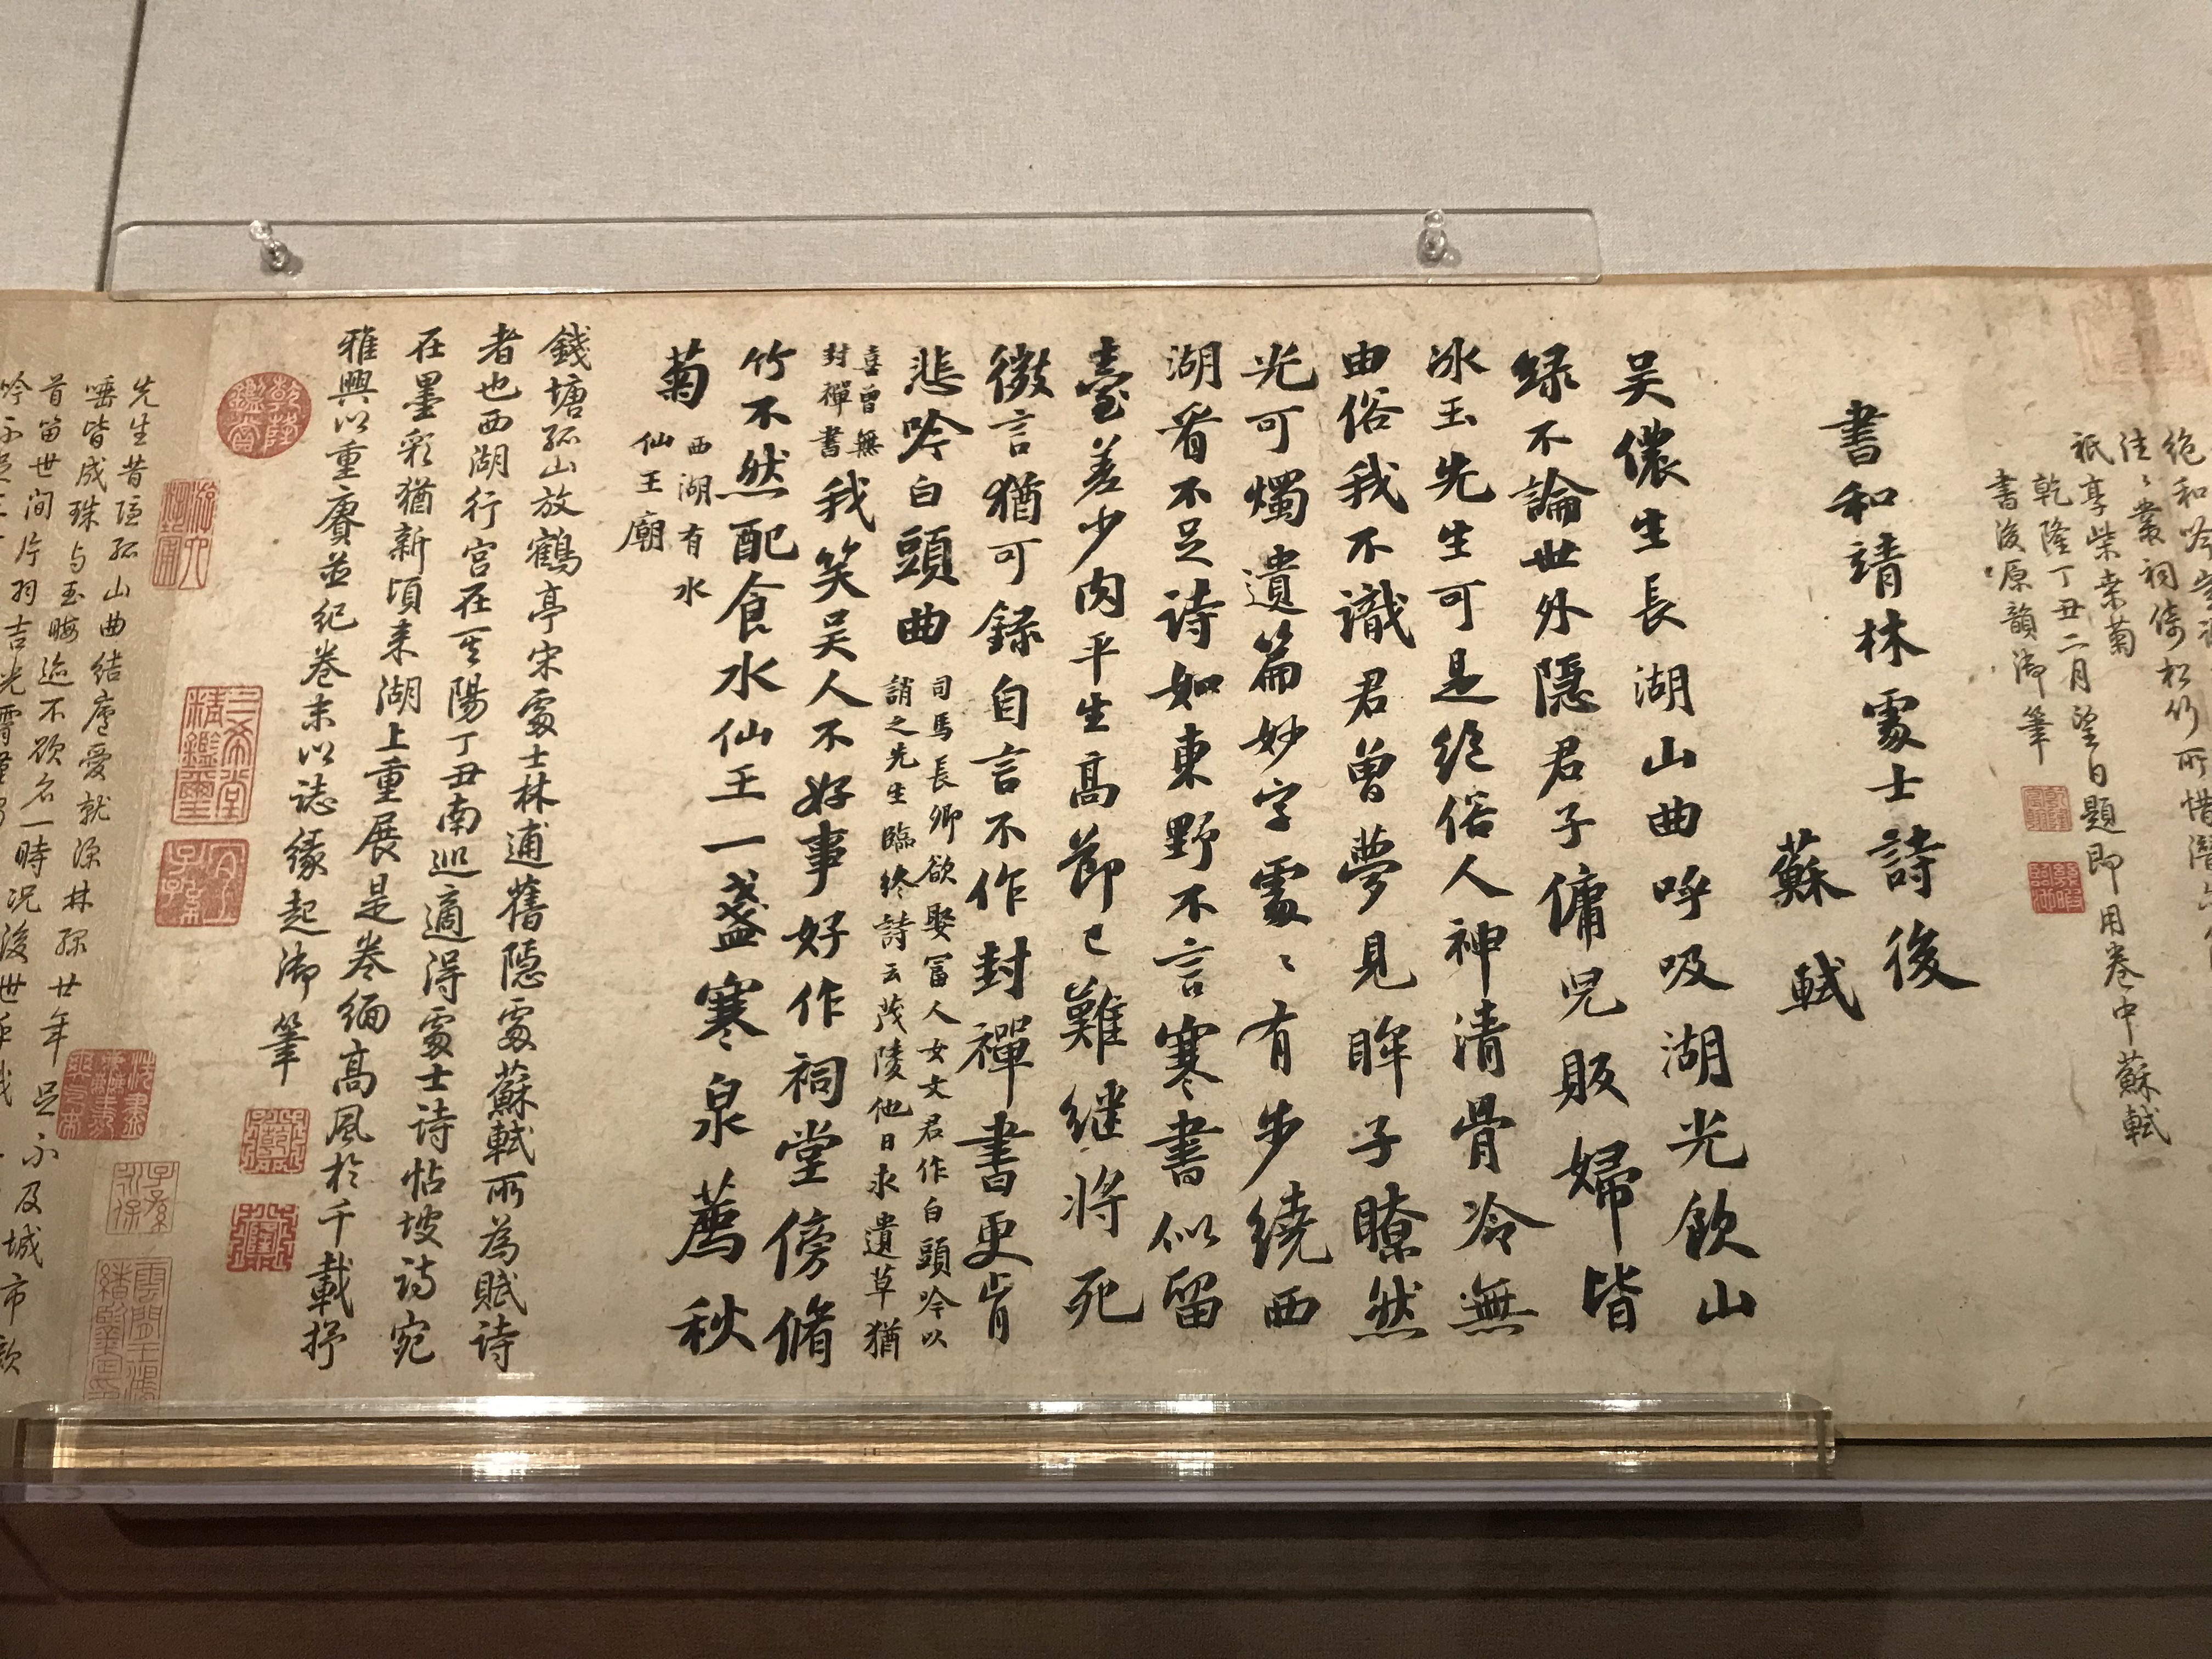 祇享柴桑菊
乾隆丁丑二月望日題即用卷中蘇軾
書後原韻御筆
書和靖林處士詩後
蘇軾
吴儂生長湖山曲呼吸湖光飲山
緑不論世外隱君子傭兒販婦皆
冰玉先生可是絶俗人神清骨冷無
由俗我不識君曾夢見眸子瞭然
光可燭遺篇妙字處〻有步繞西
湖看不足詩如東野不言寒書似留
臺差少肉平生高節已難繼將死
微言猶可録自言不作封禪書更肯
悲吟白頭曲
司馬長卿欲娶富人女文君作白頭吟以
誚之先生臨終詩云茂陵他日求遺草猶
喜曾無
封禪書
我笑吴人不好事好作祠堂傍脩
竹不然配食水仙王一盞寒泉薦秋
菊
西湖有水
仙王廟
錢塘孤山放鶴亭宋處士林逋舊隱處蘇軾所為賦詩
者也西湖行宮在其陽丁丑南巡適得處士詩帖坡詩宛
在墨彩猶新頃来湖上重展是卷緬高風於千載抒
雅興以重賡並紀卷末以誌緣起御筆
乾隆鑑賞
三希堂精鑑璽
宜子孫
先生昔隱孤山曲結廬愛就深林緑廿年足不及城市欬
唾皆成珠与玉晦迹不欲名一時况後世
首留世間片羽吉光